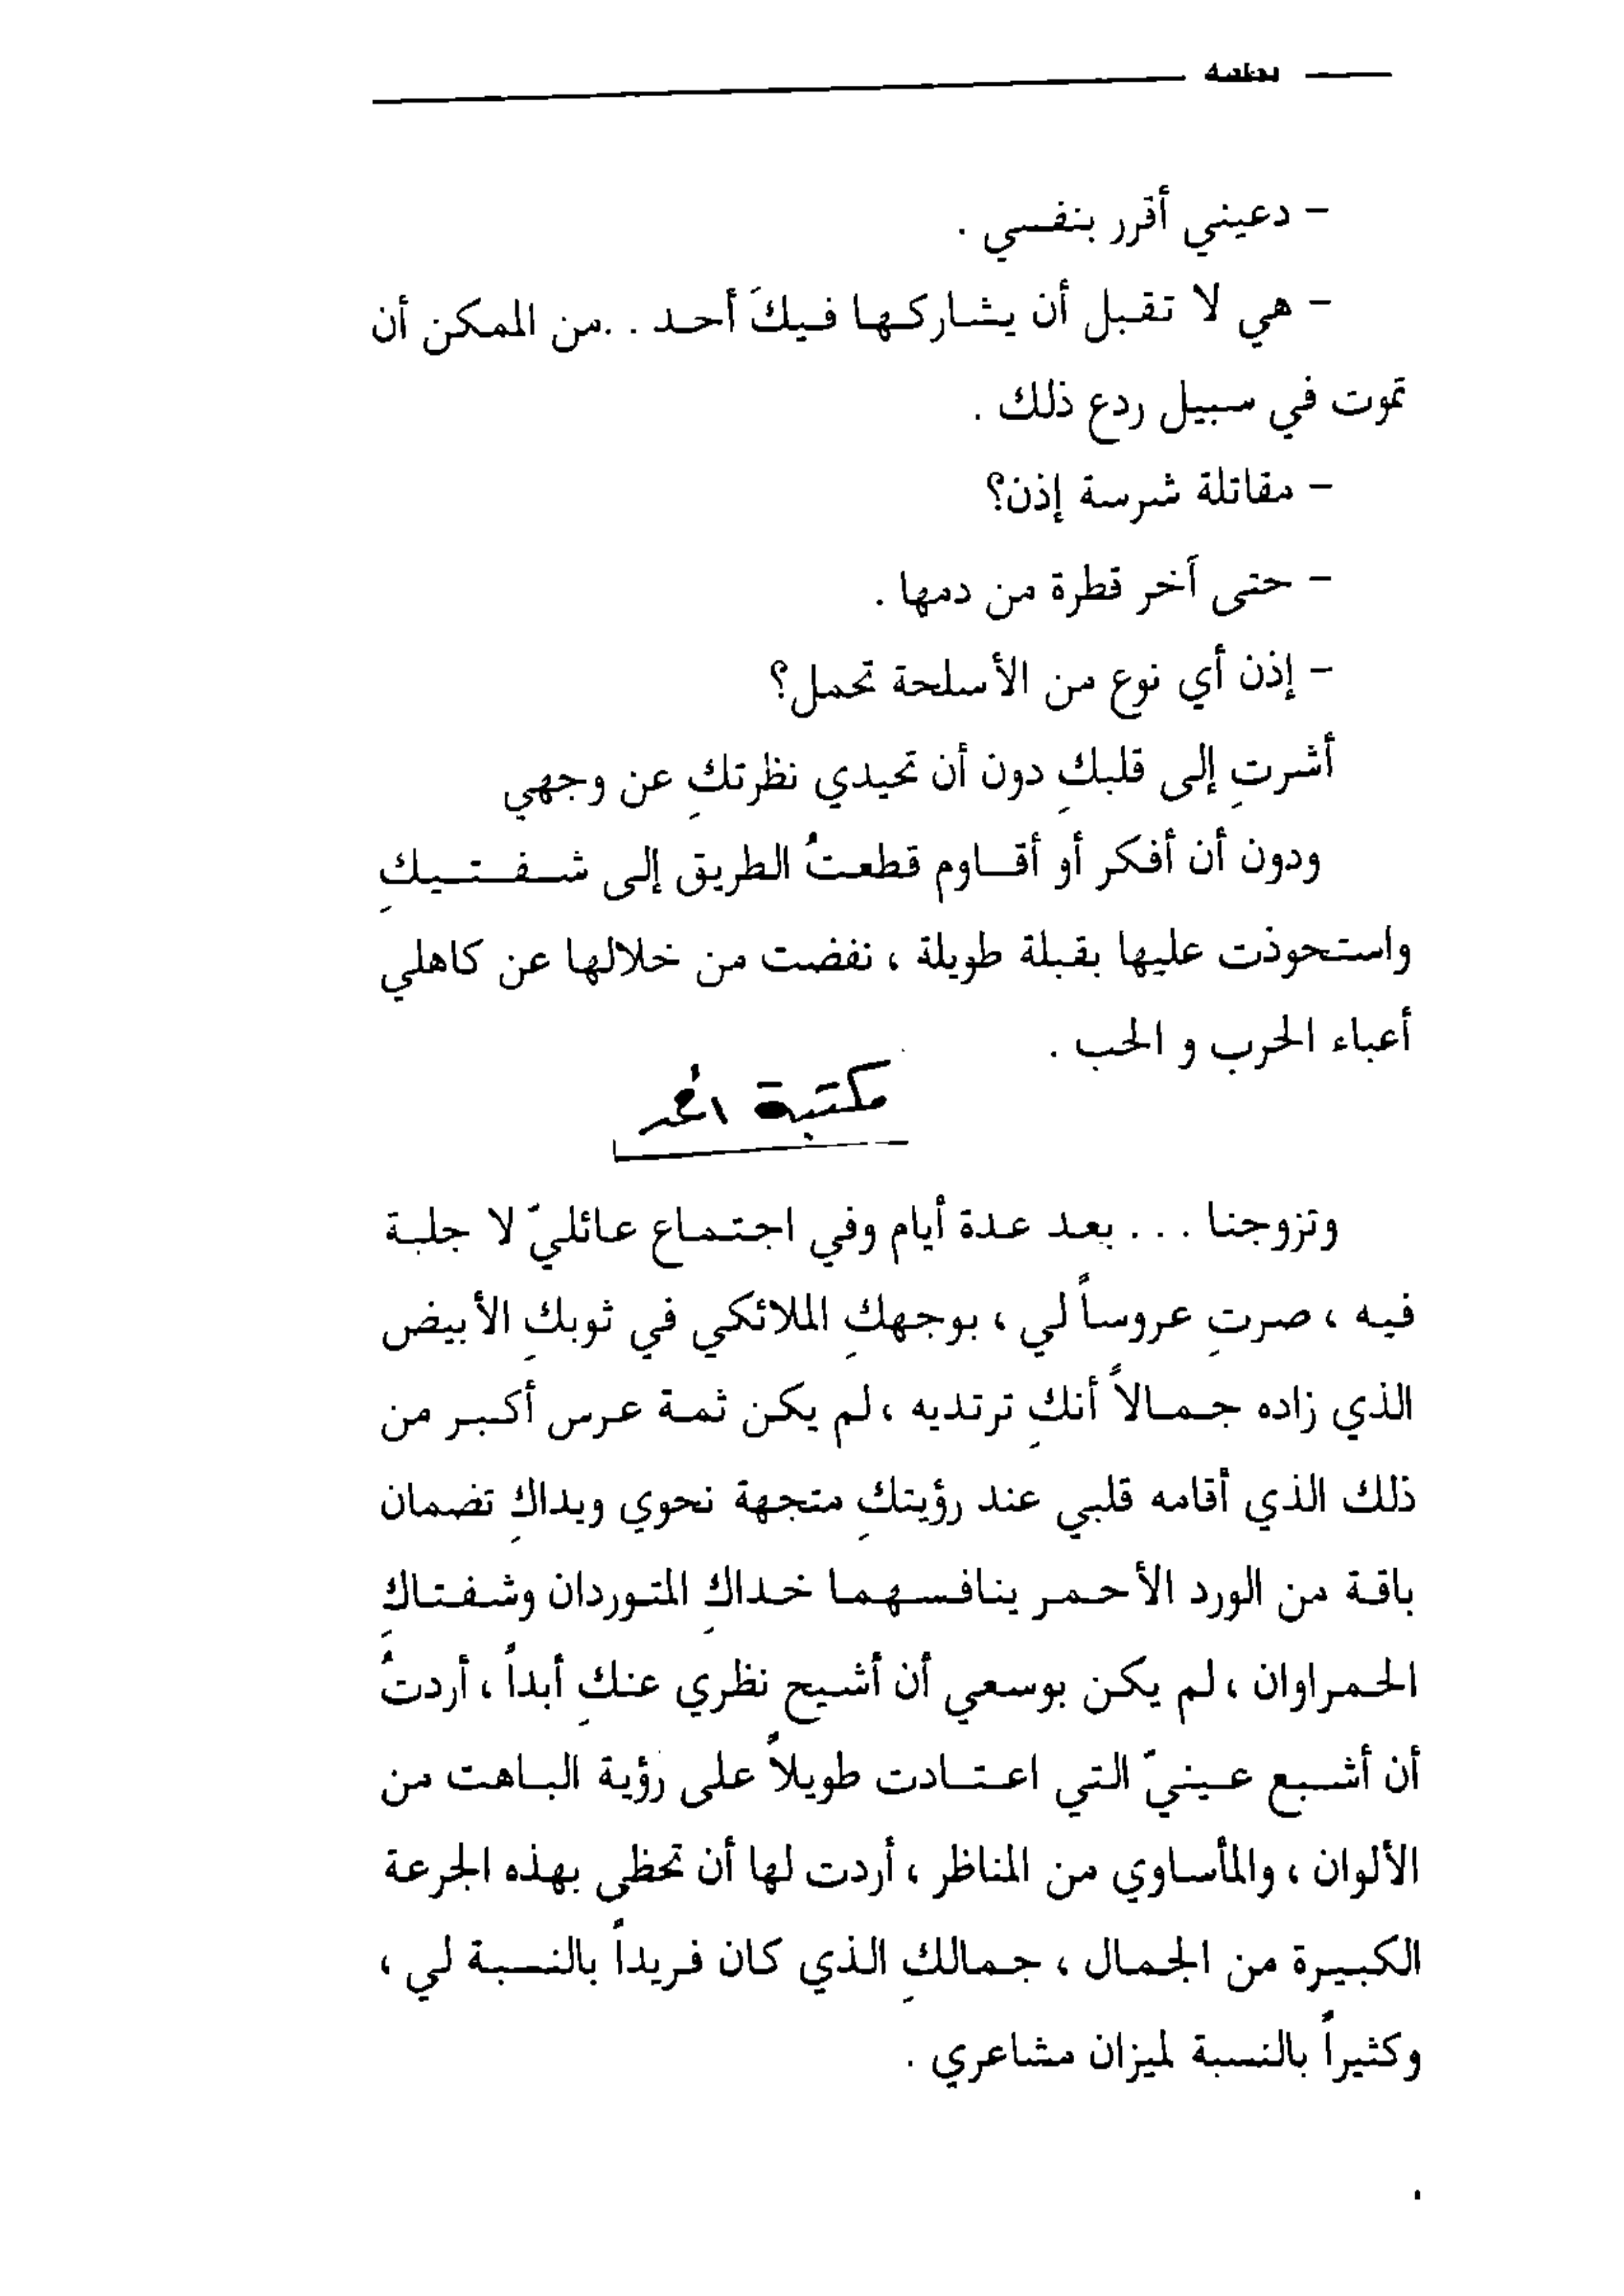 - دعيني أقرر بنفسي .
- هي لا تقبل أن يشاركها فيكَ أحد . . .من الممكن أن
تموت في سبيل ردع ذلك .
- مقاتلة شرسة إذن؟
- حتى آخر قطرة من دمها .
- إذن أي نوع من الأسلحة تحمل؟
أشرتِ إلى قلبكِ دون أن تحيدي نظرتكِ عن وجهي
ودون أن أفكر أو أقاوم قطعتُ الطريق إلى شفتيكِ
واستحوذت عليها بقبلة طويلة ، نفضت من خلالها عن كاهلي
أعباء الحرب و الحب .
مكتبة
وتزوجنا . . . بعد عدة أيام وفي اجتماع عائليّ لا جلبة
فيه ، صرتِ عروساً لي ، بوجهكِ الملائكي في ثوبكِ الأبيض
الذي زاده جمالاً أنكِ ترتديه ، لم يكن ثمة عرس أكبر من
ذلك الذي أقامه قلبي عند رؤيتكِ متجهة نحوي ويداكِ تضمان
باقة من الورد الأحمر ينافسهما خداكِ المتوردان وشفتاكِ
الحمراوان ، لم يكن بوسعي أن أشيح نظري عنكِ أبداً ، أردتُ
أن أشبع عينيّ التي اعتادت طويلاً على رؤية الباهت من
الألوان ، والمأساوي من المناظر ، أردت لها أن تحظى بهذه الجرعة
الكبيرة من الجمال ، جمالكِ الذي كان فريداً بالنسبة لي ،
وكثيراً بالنسبة لميزان مشاعري .